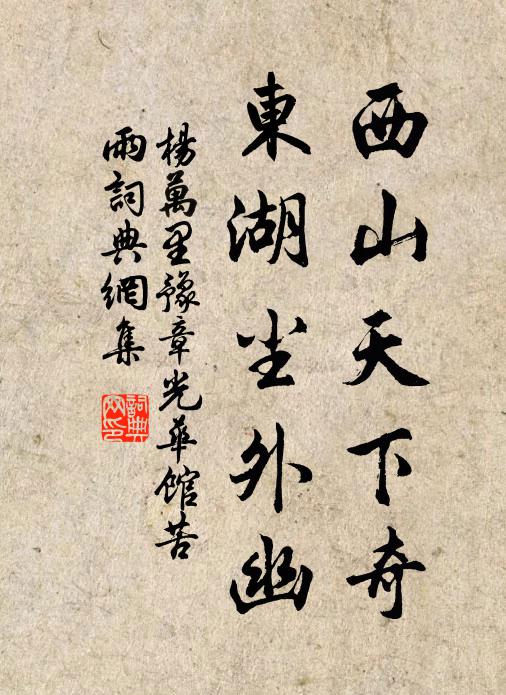 西山天下奇
東湖尘外幽
楊萬里豫章光華馆苦
雨詞典網集
詞典網印